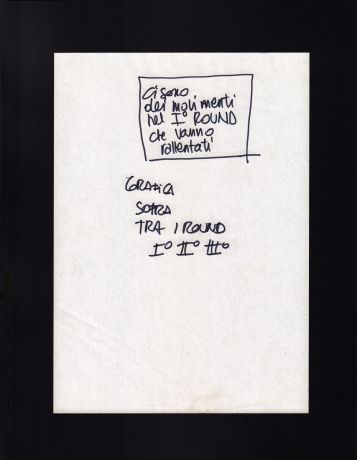 ci sono
dei mglimenti
nel I° ROUND
che vanno
rallentati
GRAFICA
SOPRA
TRA I ROUND
I° II° III°